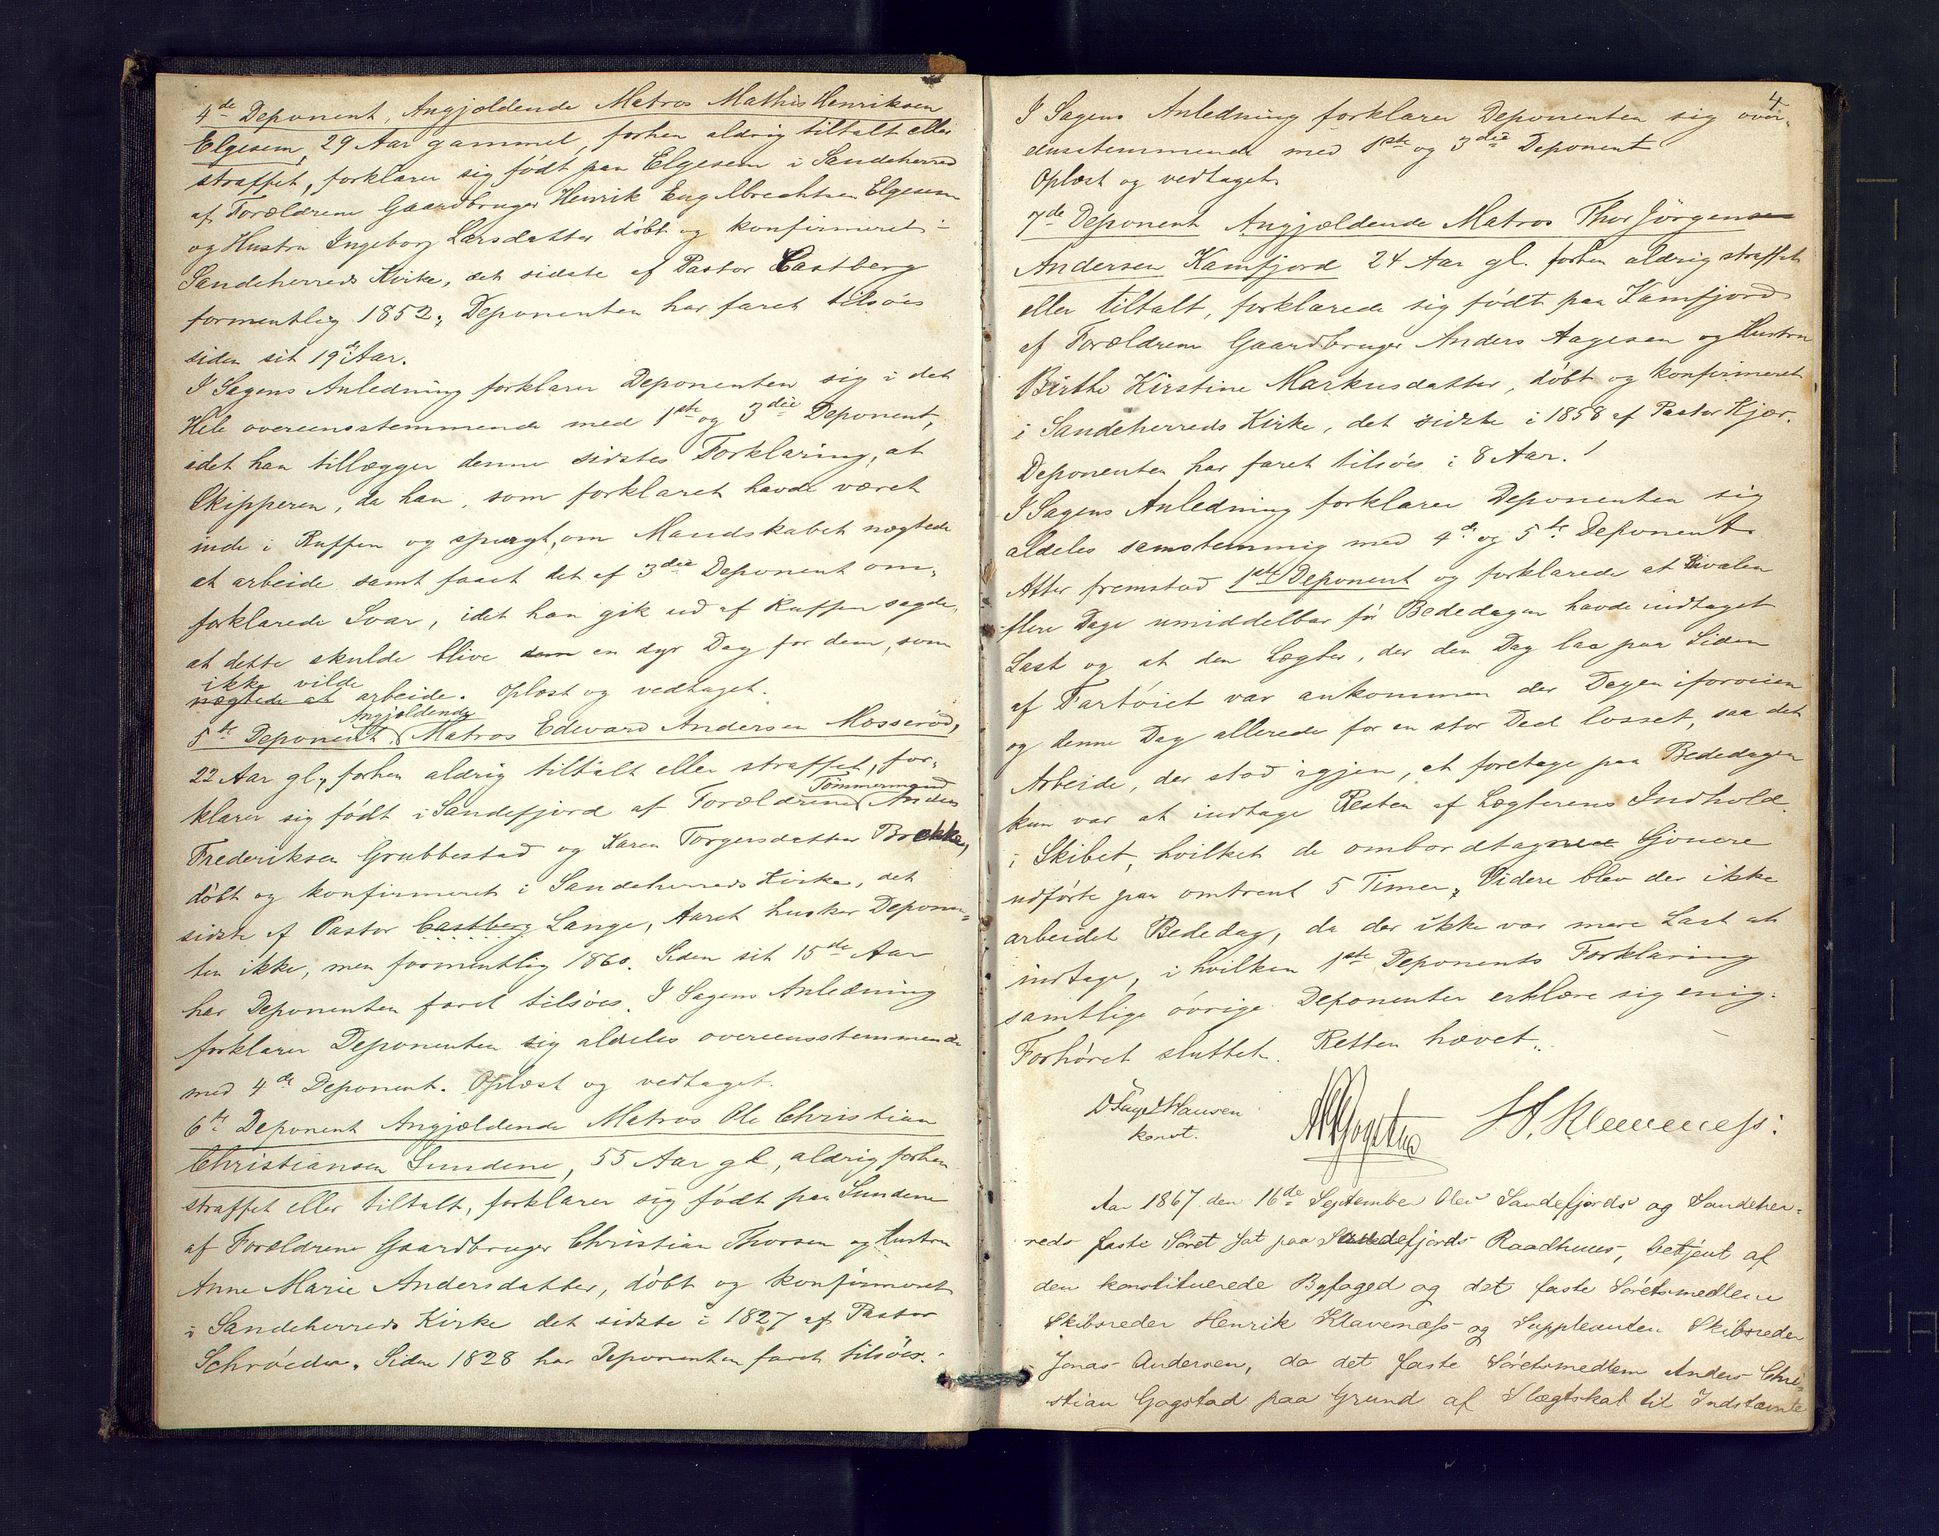 4de Deponent, Angjældende Matros Mathis Henriksen
Elgesem, 29 Aar gammel, forhen aldrig tiltalt eller
straffet, forklarer sig født paa Elgesem i Sandeherred
af Forældrene Gaardbruger Henrik Engelbrechtsen Elgesem
og Hustru Ingeborg Larsdatter døbt og konfirmeret i
Sandeherreds Kirke, det sidste af Pastor Castberg
formentlig 1852, Deponenten har faret tilsøes
siden sit 19de Aar.
I Sagens Anledning forklarer Deponenten sig i det
Hele overeensstemmende med 1ste og 3die Deponent,
idet han tillægger denne sidstes Forklaring, at
Skipperen, da han, som forklaret havde været
inde i Ruffen og spurgt, om Mandskabet nægtede
at arbeide samt faaet det af 3die Deponent om-
forklarede Svar, idet han gik ud af Ruffen sagde,
at dette skulde blive dem en dyr Dag for dem, som
ikke vilde
nægtede at arbeide. Oplæst og vedtaget.
Angjældende
5te Deponent, Matros Edvard Andersen Mosserød,
22 Aar gl., forhen aldrig tiltalt eller straffet, for-
Tømmermand
klarer sig født i Sandefjord af Forældrene Anders
Frederiksen Grubbestad og Karen Torgersdatter Brekke,
døbt og konfirmeret i Sandeherreds Kirke, det
sidste af Pastor Castberg Lange, Aaret husker Deponen-
ten ikke, men formentlig 1860. Siden sit 15de Aar
har Deponenten faret tilsøes. I Sagens Anledning
forklarer Deponenten sig aldeles overeensstemmende
med 4de Deponent. Oplæst og vedtaget.
6te Deponent Angjældende Matros Ole Christian
Christiansen Sundene, 55 Aar gl, aldrig forhen
straffet eller tiltalt, forklarer sig født paa Sundene
af Forældrene Gaardbruger Christian Thorsen og Hustru
Anne Marie Andersdatter, døbt og konfirmeret
i Sandeherreds Kirke det sidste i 1827 af Pastor
Schrøder. Siden 1828 har Deponenten faret tilsøes.
4
I Sagens Anledning forklarer Deponenten sig over-
ensstemmende med 1ste og 3die Deponent
Oplæst og vedtaget.
7de Deponent Angjældende Matros Thor Jørgensen
Andersen Kamfjord 24 Aar gl. forhen aldrig straffet
eller tiltalt, forklarede sig født paa Kamfjord
af Forældrene Gaardbruger Anders Aagesen og Hustru
Birthe Kirstine Markusdatter, døbt og konfirmeret
i Sandeherreds Kirke, det sidste i 1858 af Pastor Kjær.
Deponenten har faret tilsøes i 8 Aar.
I Sagens Anledning forklarer Deponenten sig
aldeles samstemmig med 4de og 5te Deponent
Atter fremstod 1ste Deponent og forklarede at Rivalen
flere Dage umiddelbar før Bededagen havde indtaget
Last og at den Lægter, der den Dag laa paa Siden
af Fartøiet var ankommen der Dagen iforveien
og denne Dag allerede for en stor Deel losset, saa det
Arbeide, der stod igjen, at foretage paa Bededagen
kun var at indtage Resten af Lægterens Indhold
i Skibet, hvilket de ombordtagne Gjonere
udførte paa omtrent 5 Timer. Videre blev der ikke
arbeidet Bededag, da der ikke var mere Last at
indtage, i hvilken 1ste Deponents Forklaring
samtlige øvrige Deponenter erklære sig enig.
Forhøret sluttet. Retten hævet.
Hansen
konst.
Aar 1867 den 16de September blev Sandefjords og Sandeher-
reds faste Søret sat paa Sandefjords Raadhuus, betjent af
den konstituerede Byfoged og det faste Søretsmedlem
Skibsreder Henrik Klavenæss og Suppleanten Skibsreder
Jonas Andersen, da det faste Søretsmedlem Anders Chri-
stian Gogstad paa Grund af Slægtskab til Indstævnte